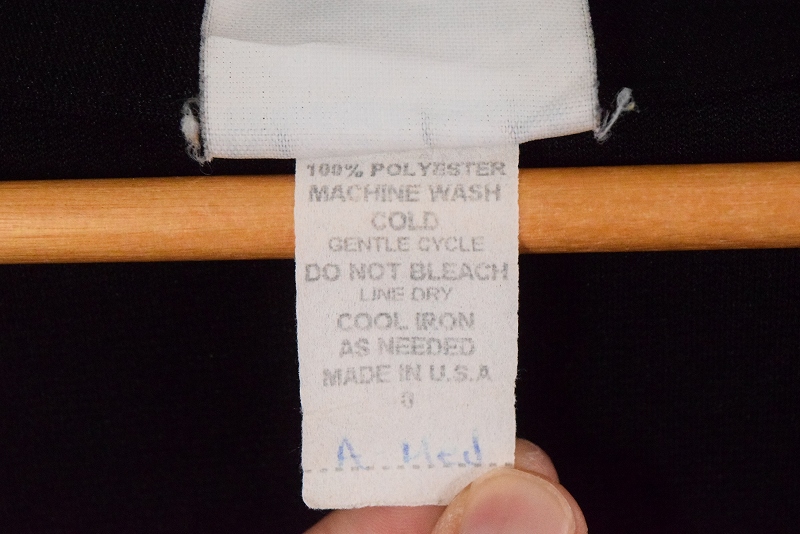 100% POLYESTER
MACHINE WASH
COLD
GENTLE CYCLE
DO NOT BLEACH
LINE DRY
COOL IRON
AS NEEDED
MADE IN U.S.A
A Med